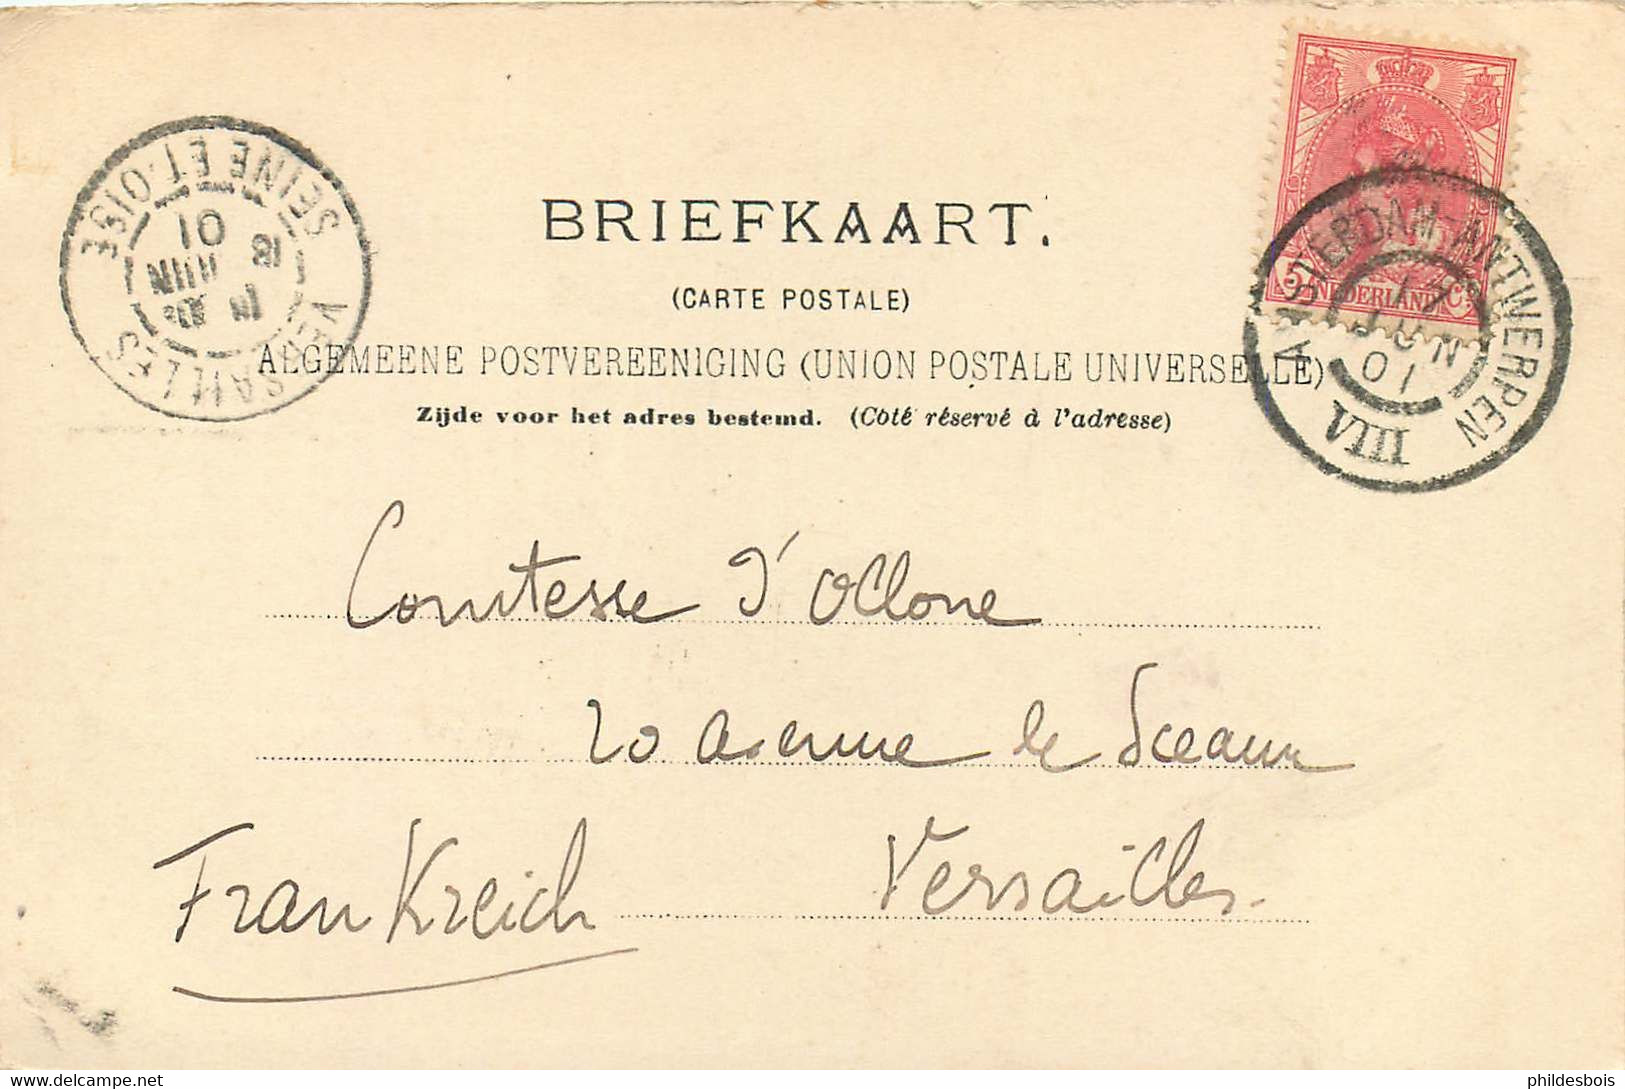 BRIEFKAART.
(CARTE POSTALE)
ALGEMEENE POSTVEREENIGING (UNION POSTALE UNIVERSELLE)
Zijde voor het adres bestemd. (Côté réservé à l'adresse)
SEINE ET-OISE
VERSAILLES
18
JUIN
01
5 NEDERLAND Ct
AMSTERDAM-ANTWERPEN
17
JUN
01
VIII
Comtesse d'Ollone
20 avenue de Sceaux
Versailles.
FranKreich
phildesbois